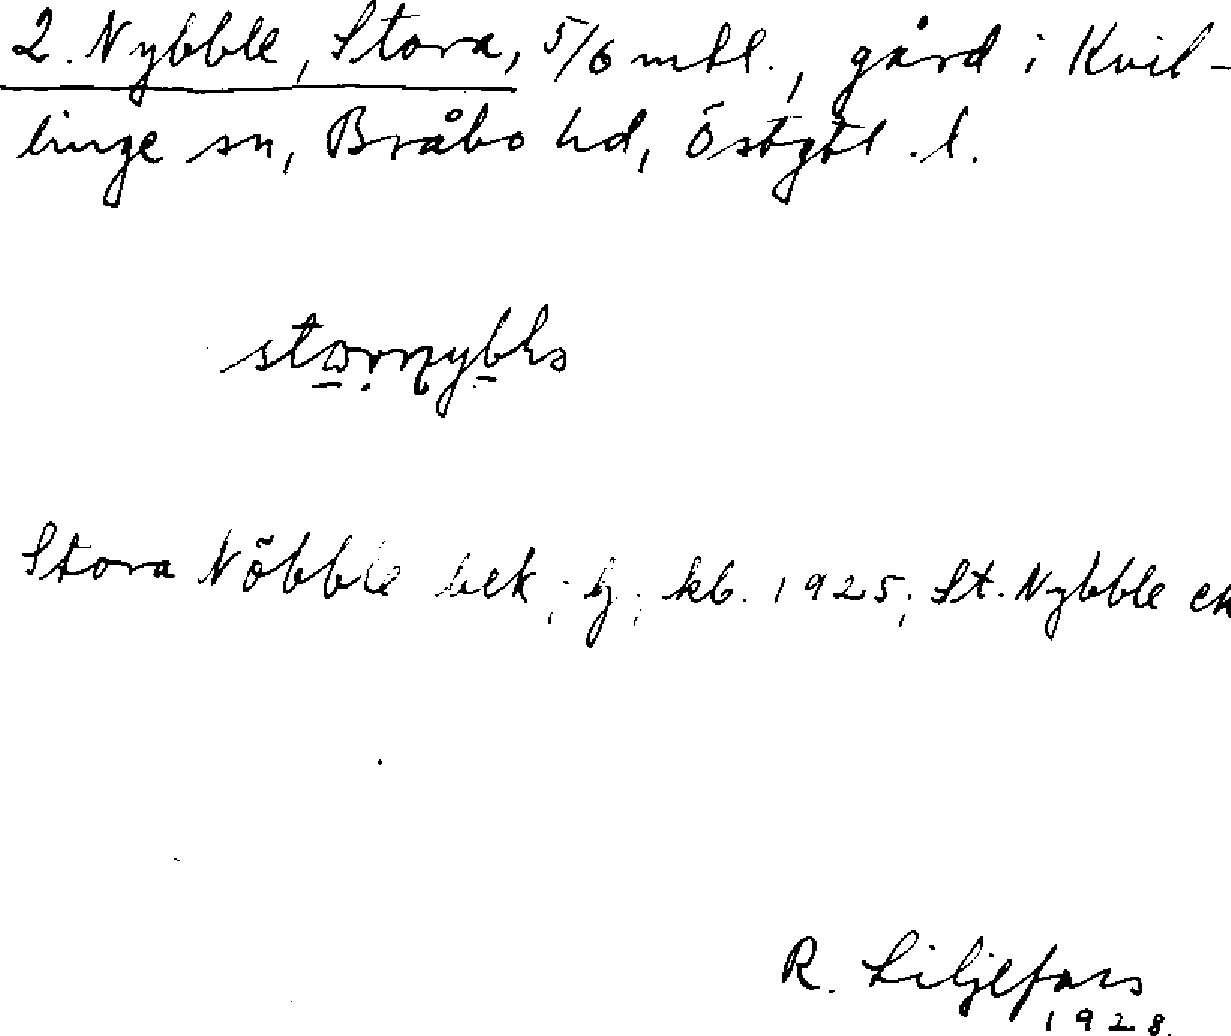 2. Nybble, Stora, 5/6 mtl., gård i Kvil-
linge sn, Bråbo hd, Östgtl. l.
Stora Nöbble bek; kb. 1925; St. Nybble
R. Liljefors
1928.